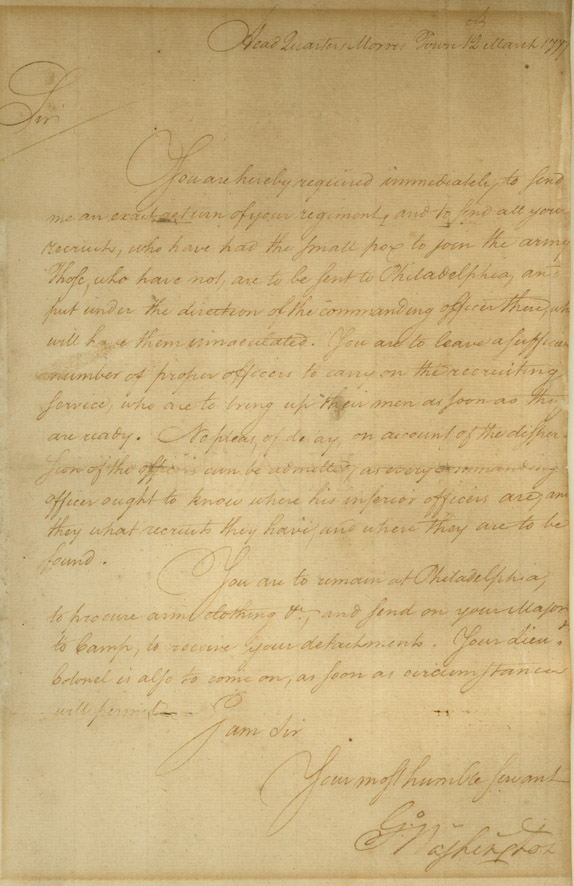 Head Quarters Morris Town 12th March 1777
Sir
You are hereby required immediately, to send
me an exact return of your regiment, and to send all your
recruits, who have had the small pox to join the army
Those, who have not, are to be sent to Philadelphia, and
put under the direction of the commanding officer there, who
will have them innoculated. You are to leave a sufficient
number of proper officers to carry on the recruiting
service, who are to bring up their men as soon as they
are ready. No pleas, of delay, on account of the disper-
sion of the officers can be admitted, as every commanding
officer ought to know where his inferior officers are, and
they what recruits they have, and where they are to be
found.
You are to remain at Philadelphia,
to procure arms clothing &c, and send on your Major
to Camp, to receive your detachments. Your Lieut
Colonel is also to come on, as soon as circumstances
will permit
I am Sir
Your most humble servant
Go Washington